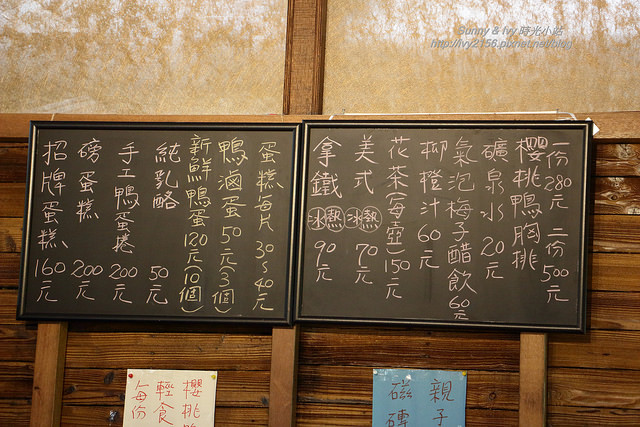 Sunny & Ivy 時光小站
http://ivy2156.pixnet.net/blog
一份280元 二份500元
櫻桃鴨胸排
礦泉水 20元
氣泡梅子醋飲 60元
柳橙汁 60元
花茶(每壺)150元
美式 冰 熱 70元
拿鐵 冰 熱 90元
蛋糕每片 30~40元
鴨滷蛋 50元(3個)
新鮮鴨蛋 120元(10個)
純乳酪 50元
手工鴨蛋捲 200元
磅蛋糕 200元
招牌蛋糕 160元
櫻桃
輕食
每份
親子
磁磚